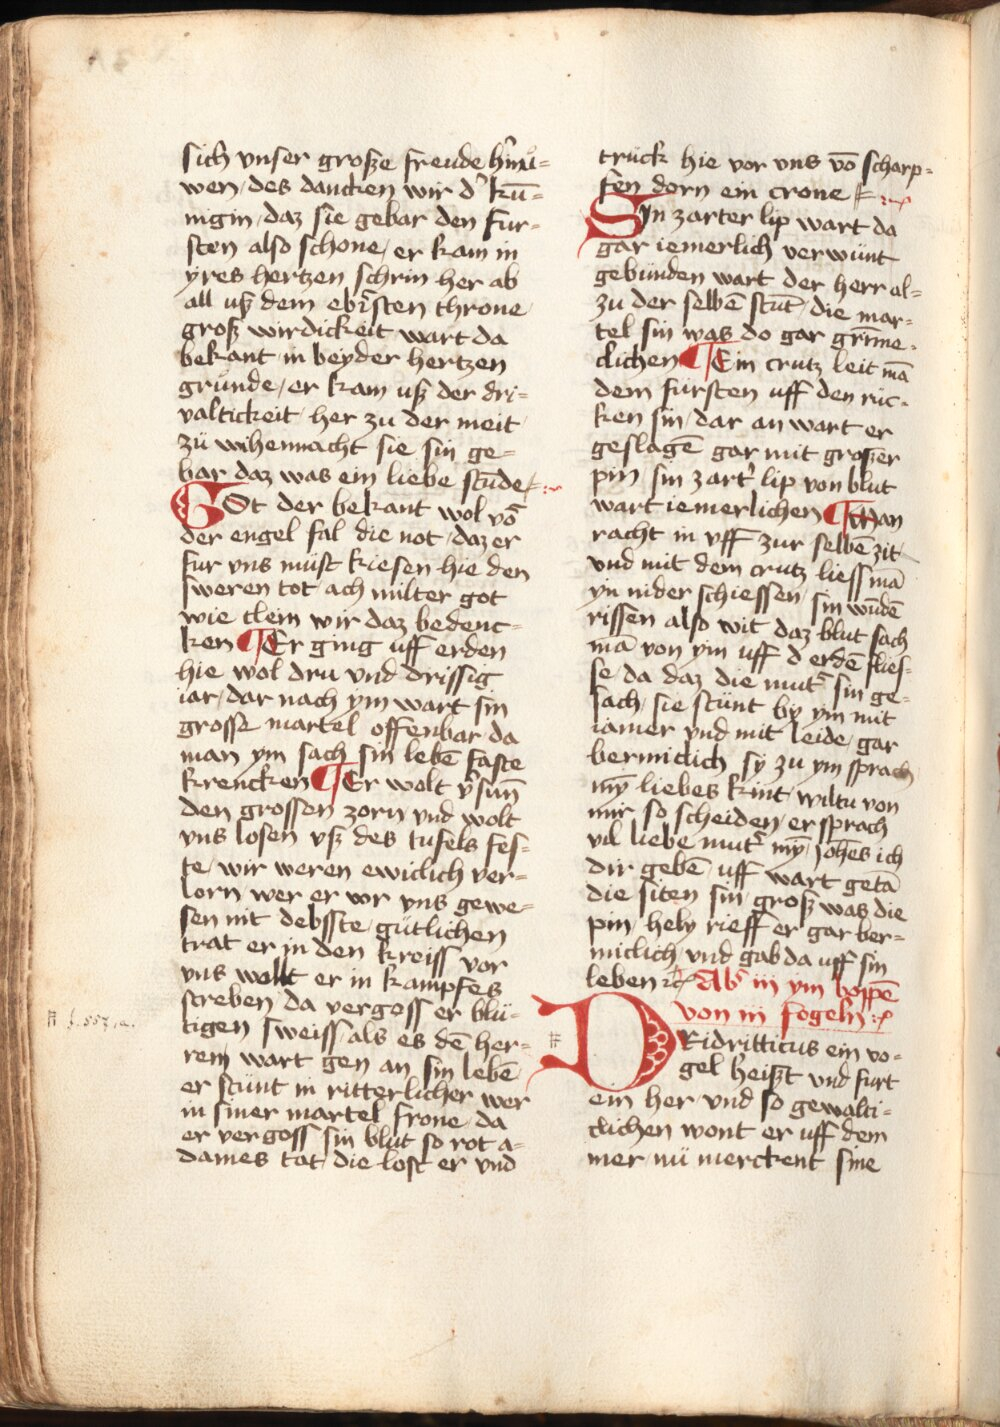 sich vnser große freude hinnů=
wen / des dancken wir d' kū=
nigin / daz sie gebar den fur=
sten also schone / er kam in
yres hertzen schrin her ab
all uß dem ebirsten throne
groß wirdickeit wart da
bekant in beyder hertzen
grunde / er kam uß der dri=
ualtickeit / her zu der meit
zü wihennacht sie sin ge=
bar daz was ein liebe stūde /
GOt der bekant wol vō
der engel fal die not / daz er
fur vns müst kiesen hie den
sweren tot / ach milter got
wie clein wir daz bedenc=
ken ¶ Er ging uff erden
hie wol dru vnd drissig
iar / dar nach ym wart sin
grosse martel offenbar da
man ym sach sin lebē faste
krencken ¶ Er wolt v'sūn
den grossen zorn vnd wolt
vns losen vß des tufels fes=
te / wir weren ewiclich ver=
lorn / wer er vor vns gewe=
sen nit debsste / gütlichen
trat er in den kreiss vor
vns wolt er in kampfes
streben da vergoss er blü=
tigen sweiss / als es dē her=
ren wart gen an sin lebē
er stünt in ritterlicher wer
in siner martel frone / da
er vergoss sin blut so rot a=
dames tot / die lost er vnd
# f. 557, a.
truck hie vor vns vō scharp=
fen dorn ein crone
SIn zarter lip wart da
gar iemerlich verwünt
gebünden wart der herr al=
zu der selbē stūt / die mar=
tel sin was do gar grīme=
clichen ¶ Ein crutz leit mā
dem fursten uff den ruc=
ken sin / dar an wart er
geslagē gar mit großer
pin sin zart' lip von blut
wart iemerlichen ¶ Man
racht in vff zur selbē zit
vnd mit dem crutz liess mā
yn nider schiessen / sin wūdē
rissen also wit daz blut sach
mā von ym uff d' erdē flies=
se / da daz die mut' sin ge=
sach / sie stünt by ym mit
iamer vnd mit leide / gar
bermiclich sy zu ym sprach
mȳ liebes kint / wiltu von
mir so scheiden / er sprach
vil liebe mut' mȳ / johēs ich
dir gebē / uff wart getā
die siten sin / groß was die
pin / hely rieff er gar ber=
miclich vnd gab da uff sin
leben
Ab' iii ym boppē
von iii fogeln
DRidritticus ein vo=
gel heißt vnd furt
ein her vnd so gewalti=
clichen wont er uff dem
mer / nü merckent sine